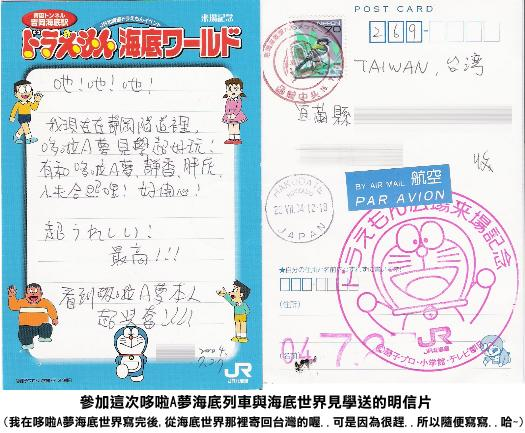 青函トンネル
吉岡海底駅
JR北海道ドラえもんイベント
来場記念
ドラえもん 海底ワールド
吔!吔!吔!
我現在在靜岡隧道裡,
哆啦A夢見學超好玩!
有和哆啦A夢,靜香,胖虎,
小夫合照哩! 好開心!
超うれしい!
最高!!!
看到哆啦A夢本人
超興奮!!!!
2004.
7.27
JR
JR北海道
POST CARD
269-
NIPPON
70
TAIWAN, 台灣
宜蘭縣
收
BY AIR MAIL 航空
PAR AVION
HAKODATE
JAPAN
ドラえもん広場来場記念
(住所)
04.7.2
JR
JR北海道
藤子プロ・小学館・テレビ朝日
參加這次哆啦A夢海底列車與海底世界見學送的明信片
(我在哆啦A夢海底世界寫完後,從海底世界那裡寄回台灣的喔..可是因為很趕..所以隨便寫寫..哈~)